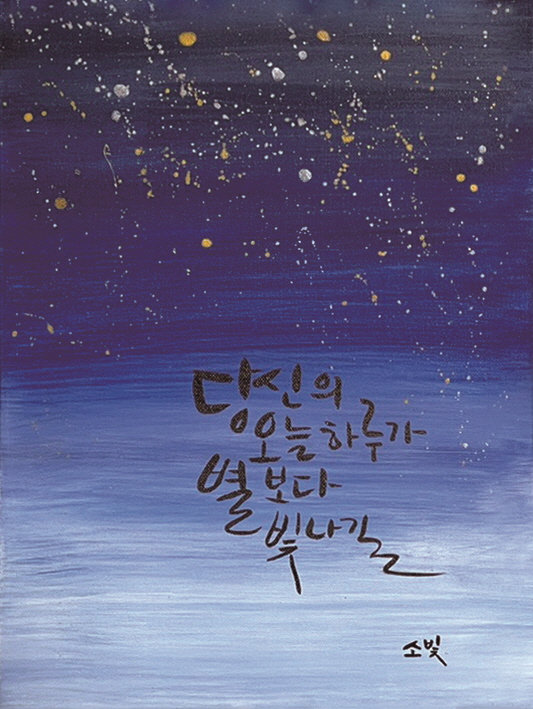 당신의
오늘 하루가
별보다
빛나길
소빛